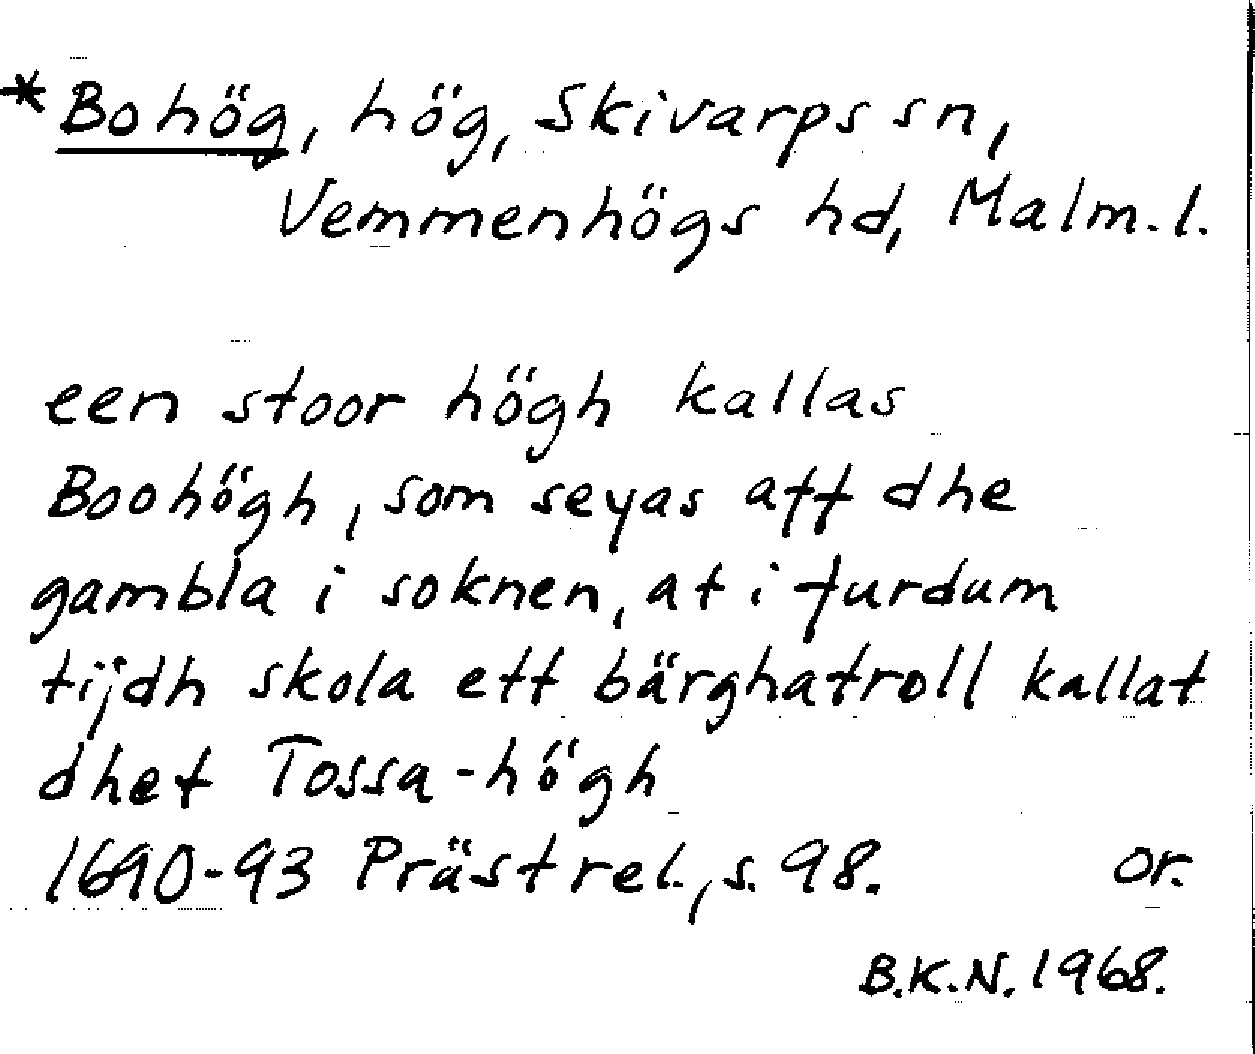 *Bohög, hög, Skivarps sn,
Vemmenhögs hd, Malm. l.
een stoor högh kallas
Boohögh, som seyas aff dhe
gambla i soknen, at i furdum
tijdh skola ett bärghatroll kallat
dhet Tossa-högh
1690-93 Prästrel., s. 98. or.
B.K.N. 1968.